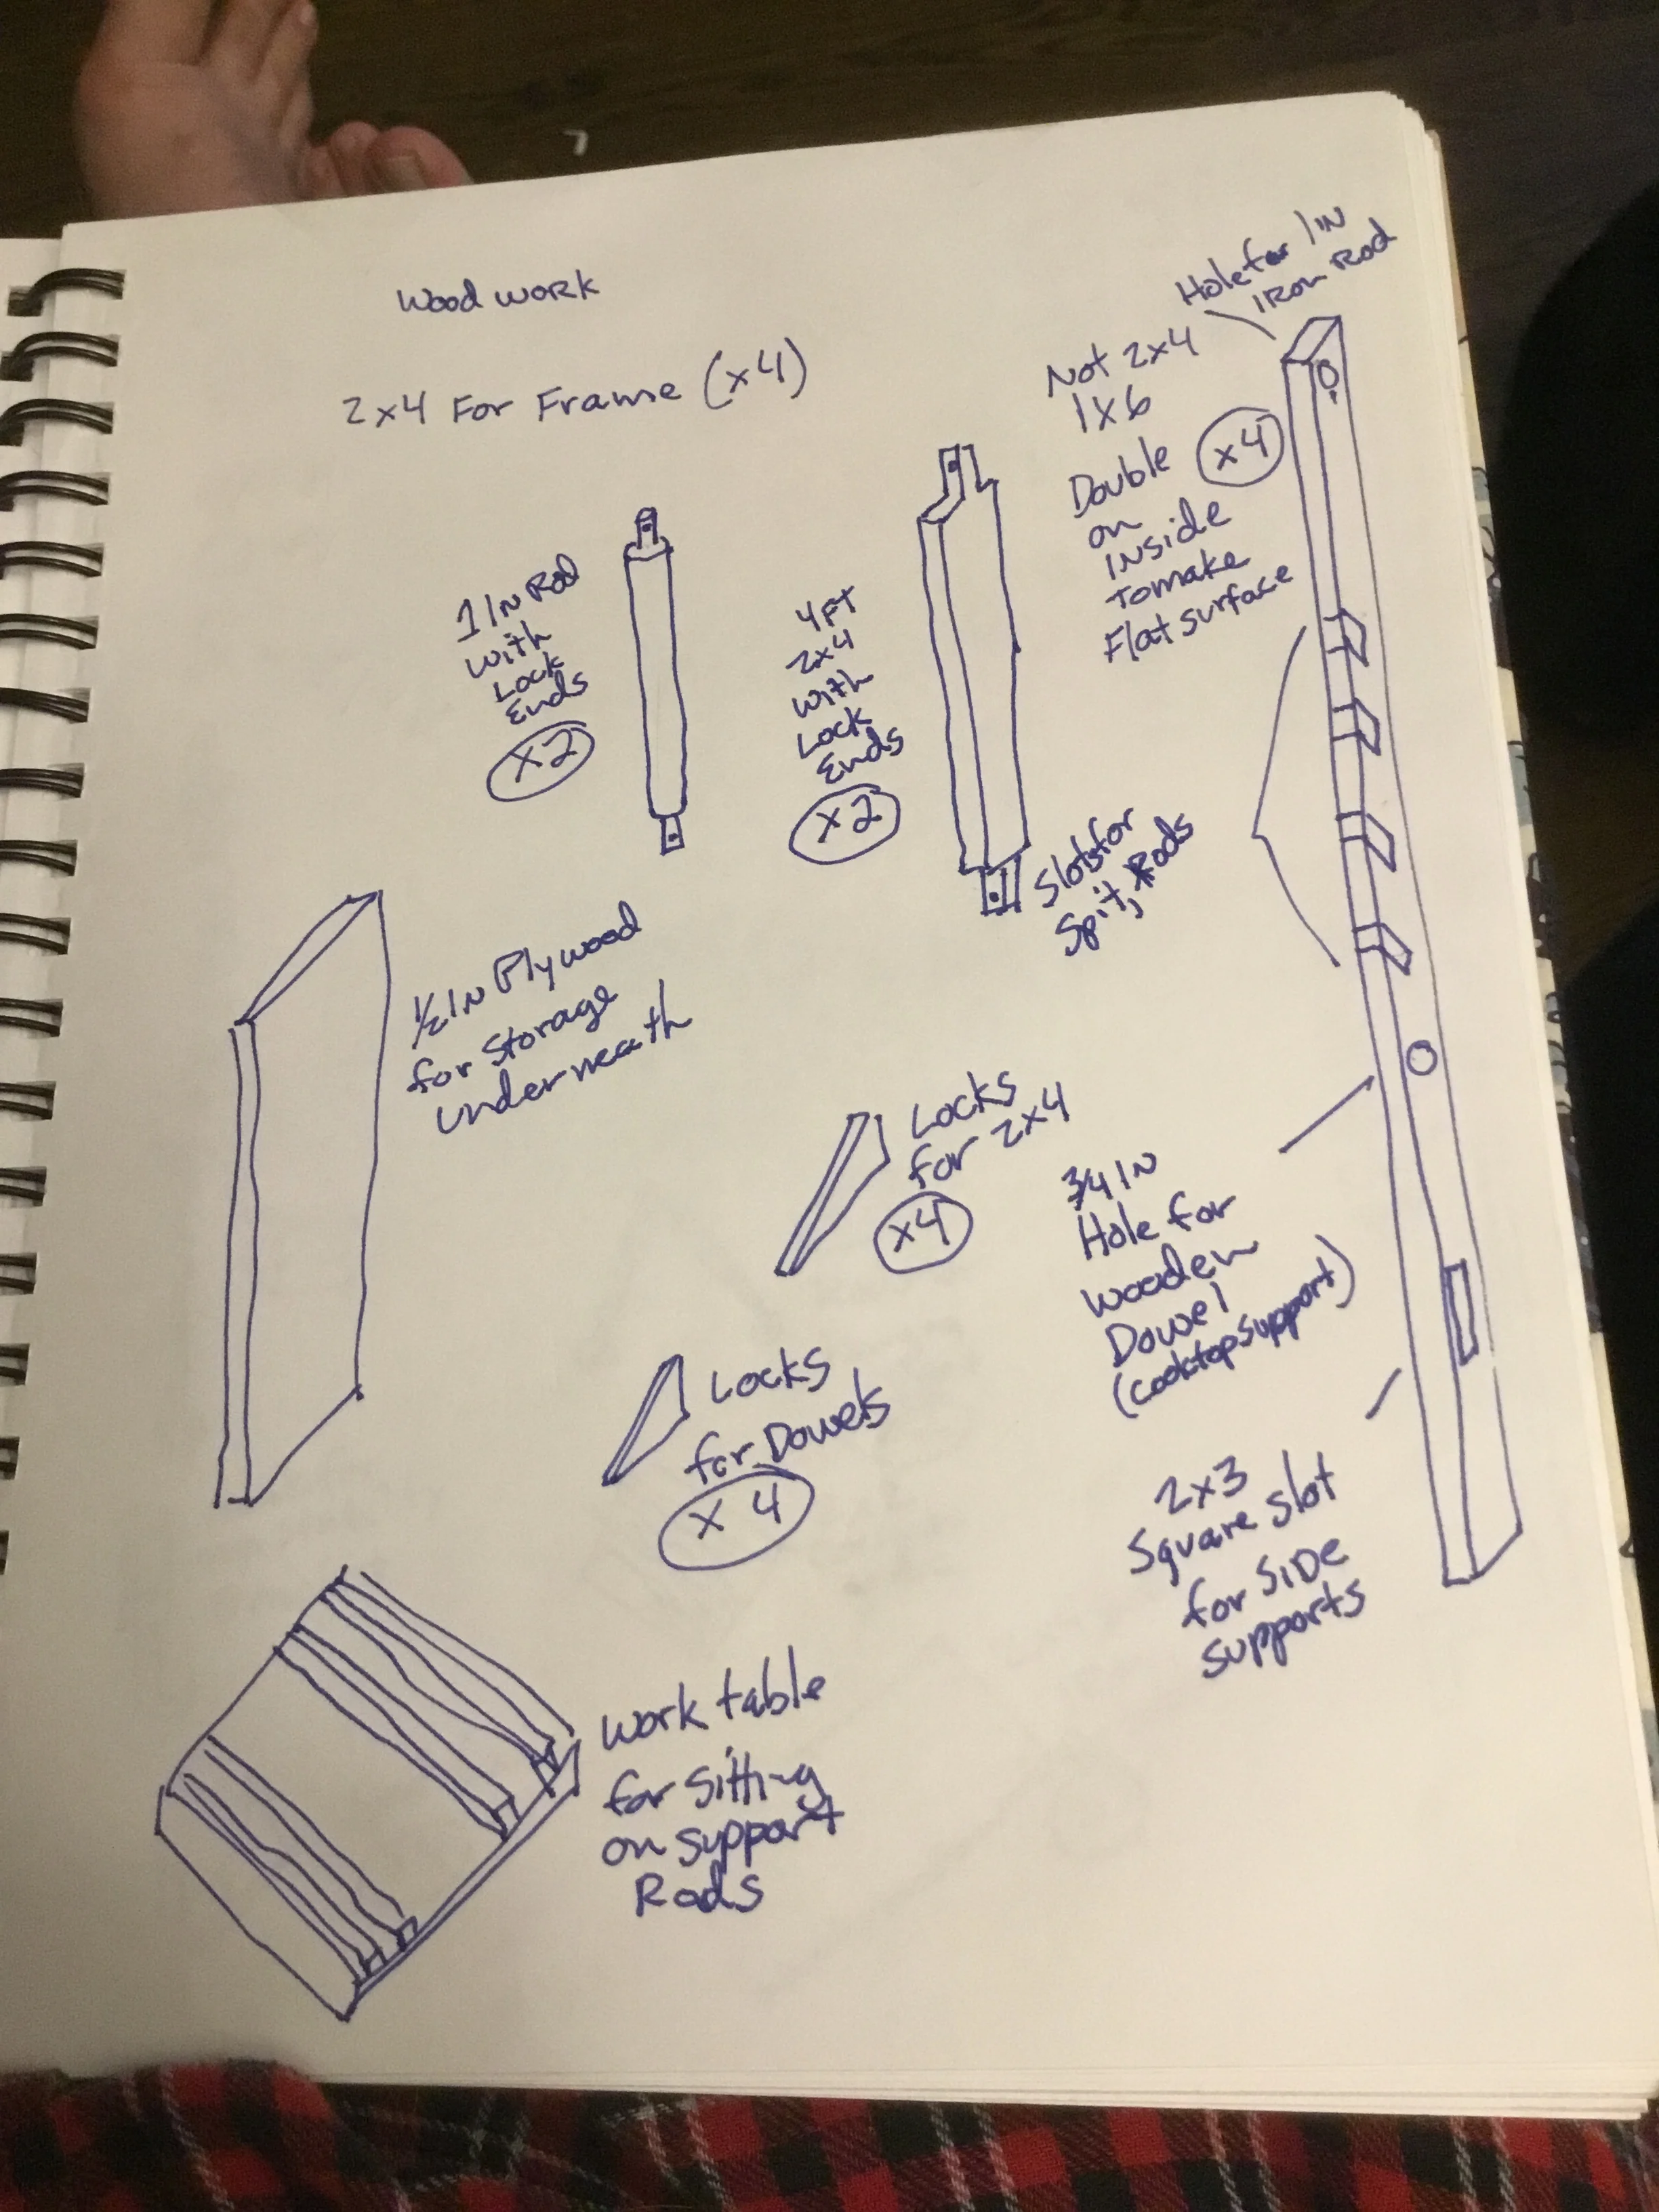 Wood work
2x4 For Frame (x4)
1 IN Rod
with
Lock
Ends
x2
4FT
2x4
with
Lock
Ends
x2
Hole for 1 IN
IRon Rod
Not 2x4
1x6
x4
Double
on
Inside
To make
Flat surface
Slots for
Spit, Rods
1/2 IN Plywood
for Storage
underneath
Locks
for 2x4
x4
3/4 IN
Hole for
wooden
Dowel
(cooktop support)
Locks
for Dowels
x 4
2x3
Square slot
for SIDE
supports
Work table
for sitting
on support
Rods